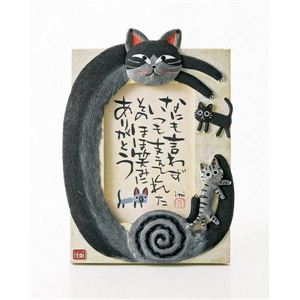 なにも言わず
さいつも支えてくれた
その ほほ笑みに
ありがとう
itoi
itoi